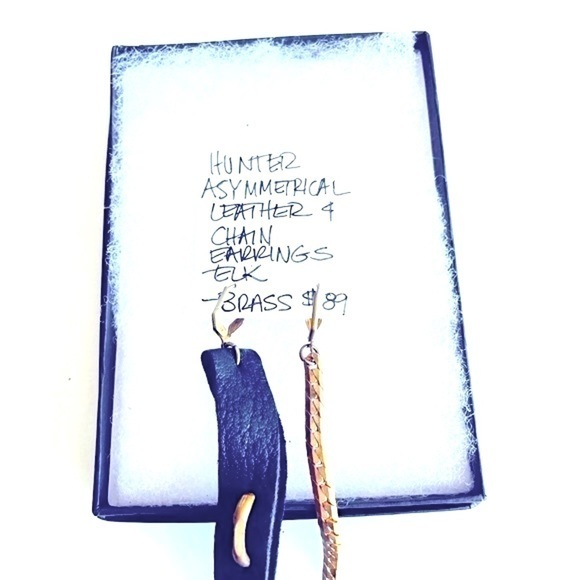 HUNTER
ASYMMETRICAL
LEATHER &
CHAIN
EARRINGS
-ELK
-BRASS $89